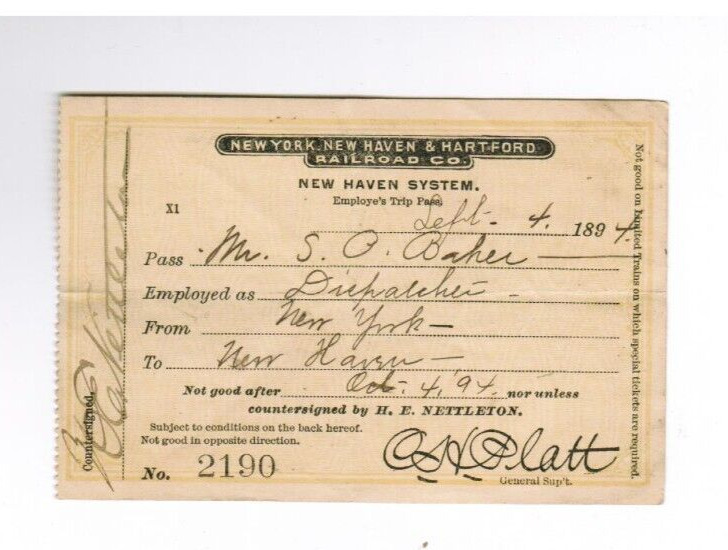 NEW YORK, NEW HAVEN & HARTFORD
RAILROAD CO.
NEW HAVEN SYSTEM.
Employe's Trip Pass.
X1
Sept. 4. 1894.
Pass Mr. S. P. Baker
Employed as Dispatcher
From New York
To New Haven
Not good after Oct. 4, '94. nor unless
countersigned by H. E. NETTLETON.
Subject to conditions on the back hereof.
Not good in opposite direction.
No. 2190
C H Platt
General Sup't.
Countersigned,
Not good on Limited Trains on which special tickets are required.